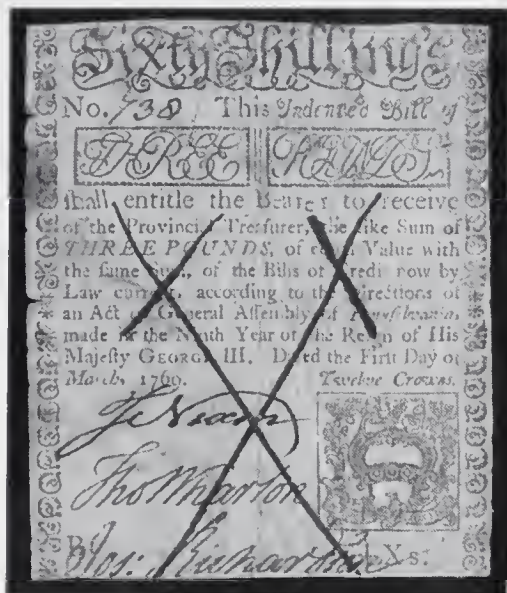 Sixty Shilling's
No. 738 This Indented Bill of
THREE POUNDS
ſhall entitle the Bearer to receive
of the Provincial Treaſurer, the like Sum of
THREE POUNDS, of equal Value with
the ſame Sum, of the Bills of Credit now by
Law current, according to the Directions of
an Act of General Aſſembly of Pennſylvania,
made in the Ninth Year of the Reign of His
Majeſty GEORGE III. Dated the Firſt Day of
March, 1769. Twelve Crowns.
J Nixon
Tho Wharton
Jos: Richardson Xs.